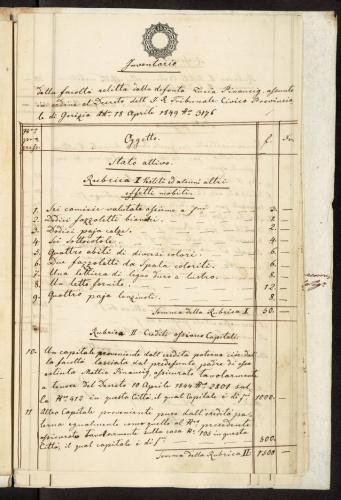 Inventario
della facoltà relitta dalla defonta Lucia Pinaucig, assunto
in ordine al Decreto dell' I. R. Tribunale Civico Provincia
le di Gorizia 18 Aprile 1849 No. 3176
Oggetto. f.
Stato attivo.
Rubrica I Vestiti ed alcuni altri
effetti mobili.
1. Sei camicie valutate assieme a f 3. —
2. Dodici fazzoletti bianchi. 1. —
3. Dodici paja calze. 2. —
4. Sei Sottocotole. 4. —
5. Quattro abiti di diversi colori. 6. —
6. Due fazzoletti da Spala coloriti. 6. —
7. Una lettiera di legno duro a lustro. 8. —
8. Un letto fornito. 12. —
9. Quattro paja lenzuoli. 8. —
Somma della Rubrica I. 50. —
Rubrica II Crediti ossiano Capitali.
10. Un capitale proveniente dall' eredità paterna cioè dal
la facoltà lasciata dal predefonto padre di essa
Mattia Pinaucig, assicurato tavolarmente
a tenore del Decreto 10 Aprile 1844 No. 2801 sul
la No. 412 in questa città, il qual capitale è di f 1000. —
11 Altro Capitale proveniente pure dall' eredità pa
terna egualmente come quello al No. precedente
assicurato tavolarmente sulla casa No. 103 in questa
Città, il qual capitale è di f 500. —
Somma della Rubrica II. 1500 —